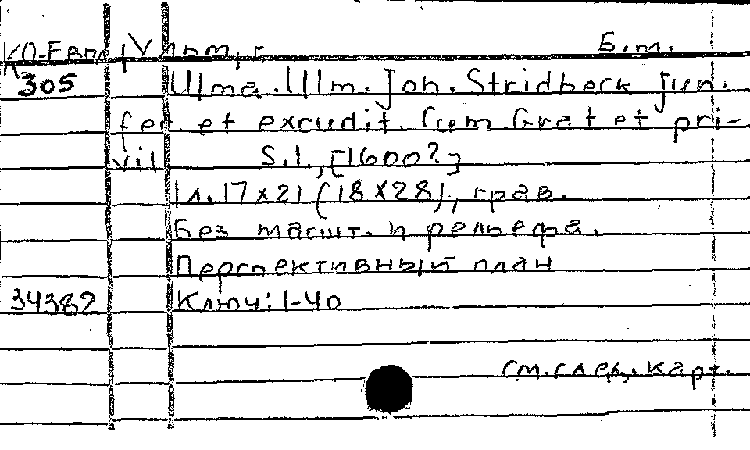 КО-Евпс/V Ульм, г. Б.м.
305 Ulma. Ulm. Joh. Stridbeck jun.
fec et excudit. Cum Grat et pri-
vil S.l., [1600?]
1 л. 17x21 (18x28), грав.
Без масшт. и рельефа.
Перспективный план
34382 Ключ: 1-40
см. след. карт.